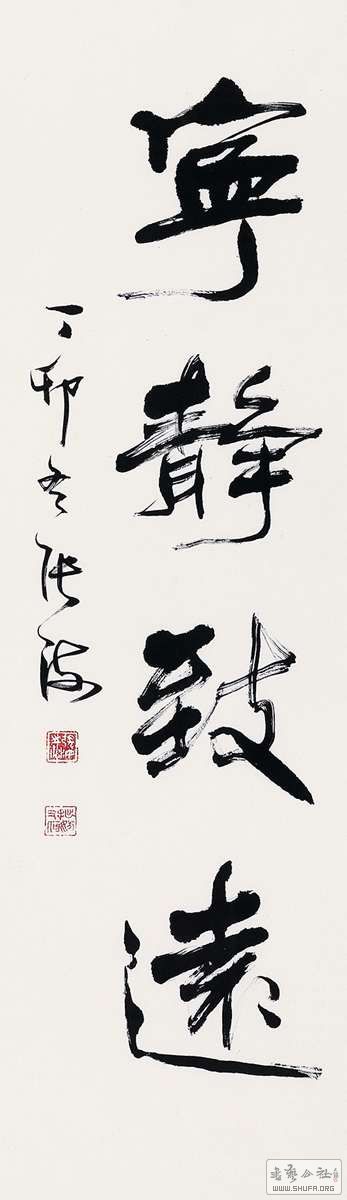 寧靜致遠
丁卯冬張海
書法公社
WWW.SHUFA.ORG